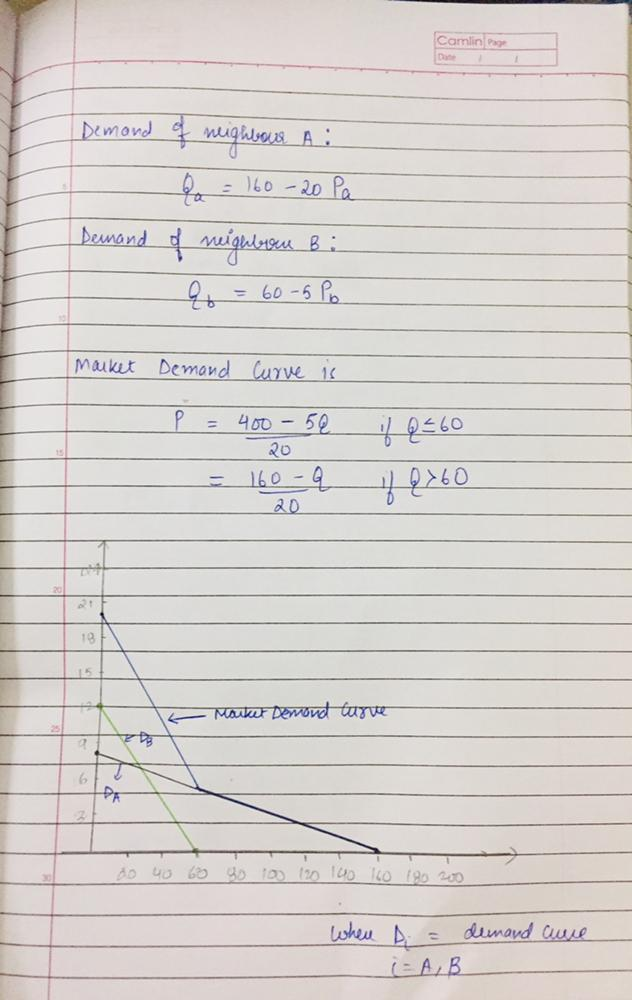 Camlin Page
Date / /
Demand of neighbour A :
Qa = 160 - 20 Pa
Demand of neighbour B :
Qb = 60 - 5 Pb
Market Demand Curve is
P = 400 - 5Q / 20 if Q ≤ 60
= 160 - Q / 20 if Q > 60
5
10
15
20
25
30
24
21
18
15
12
9
6
3
Market Demand Curve
DB
DA
20 40 60 80 100 120 140 160 180 200
When Di = demand curve
i = A, B